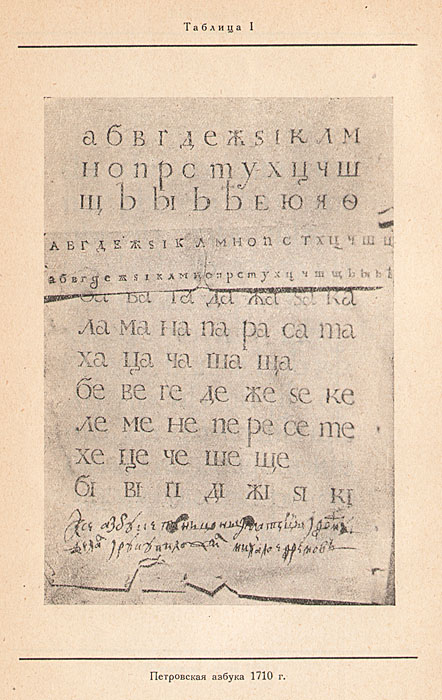 Таблица I
а б в г д е ж ѕ і к л м
н о п р с т у х ц ч ш
щ ъ ы ь ѣ е ю я ѳ
А Б В Г Д Е Ж Ѕ І К Л М Н О П С Т Х Ц Ч Ш Щ
а б в г д е ж ѕ і к л м н о п р с т у х ц ч ш щ ъ ы ь ѣ
ба ва га да жа ѕа ка
ла ма на па ра са та
ха ца ча ша ща
бе ве ге де же ѕе ке
ле ме не пе ре се те
хе це че ше ще
бі ві гі ді жі ѕі кі
Петровская азбука 1710 г.